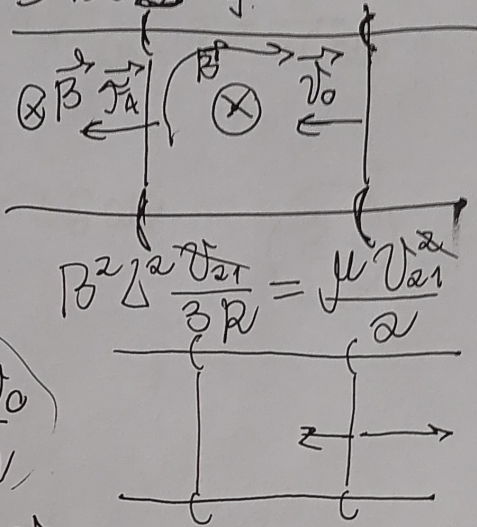 ⊗ B⃗ F⃗A B ⊗ v⃗0
B² L² v21 / 3R = μ v21² / 2